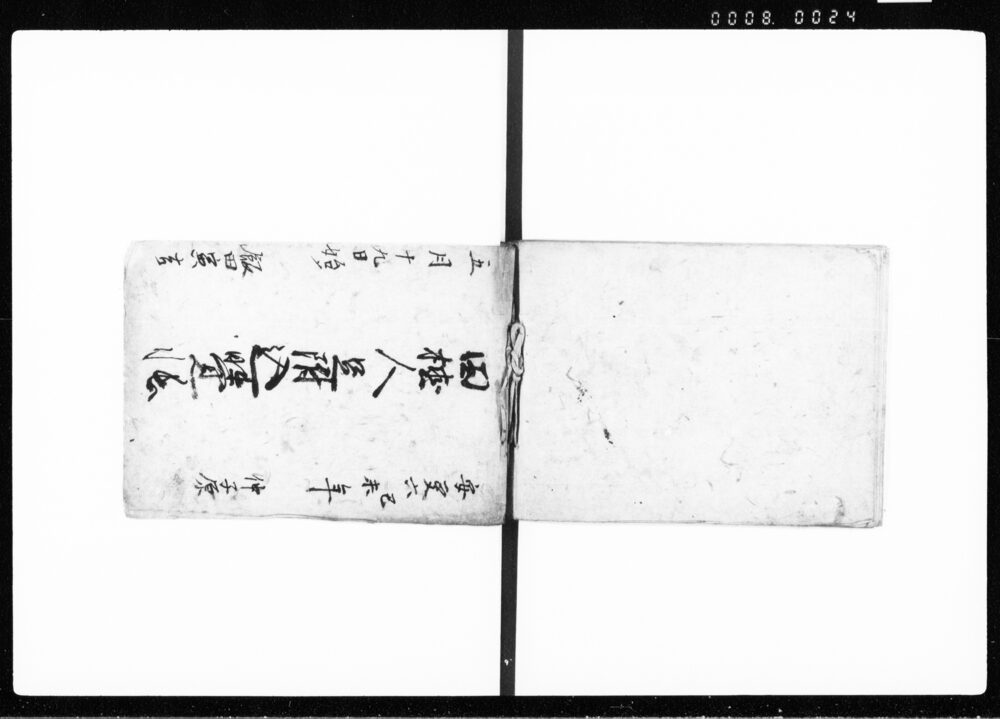 0008. 0024
安政六己未年 仲子原
田植人足附込
五月十九日始 飯田寅吉